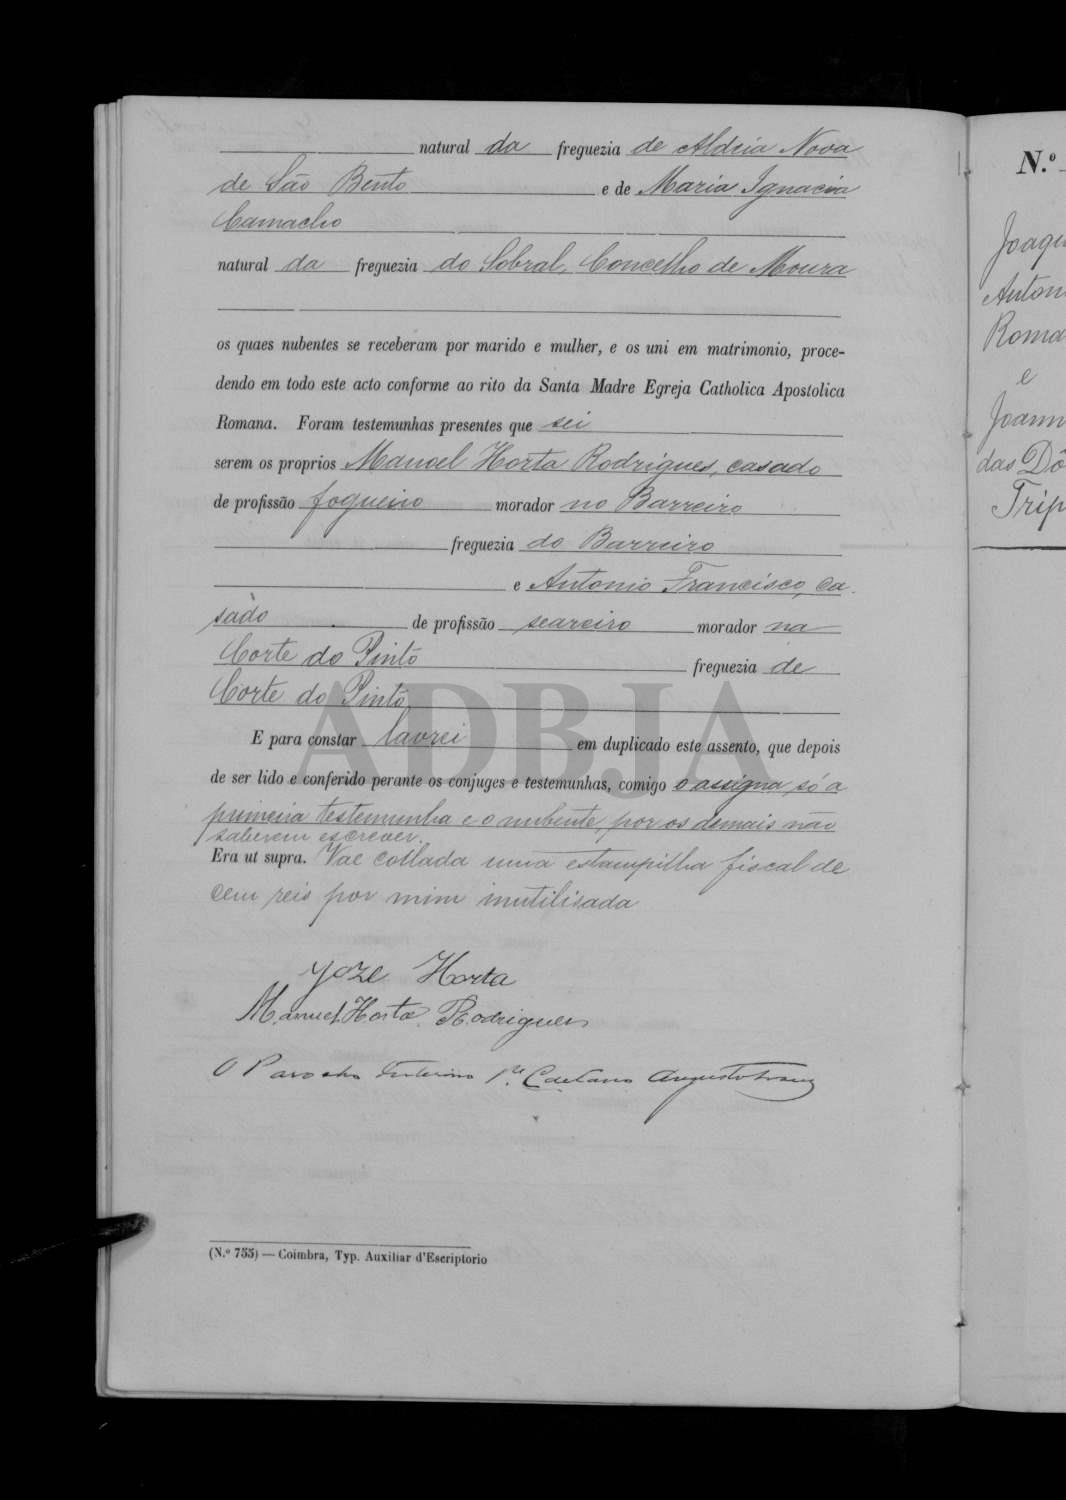 natural da freguezia de Aldeia Nova
de São Bento e de Maria Ignacia
Camacho
natural da freguezia do Sobral, Concelho de Moura
os quaes nubentes se receberam por marido e mulher, e os uni em matrimonio, proce-
dendo em todo este acto conforme ao rito da Santa Madre Egreja Catholica Apostolica
Romana. Foram testemunhas presentes que sei
serem os proprios Manoel Horta Rodrigues, casado
de profissão fogueiro morador no Barreiro
freguezia do Barreiro
e Antonio Francisco, ca-
sado de profissão seareiro morador na
Corte do Pinto freguezia de
Corte do Pinto
E para constar lavrei em duplicado este assento, que depois
de ser lido e conferido perante os conjuges e testemunhas, comigo o assigna só a
primeira testemunha e o nubente, por os demais não
saberem escrever.
Era ut supra. Vae collada uma estampilha fiscal de
cem reis por mim inutilisada
Joze Horta
Manuel Horta Rodrigues
O Parocho Interino P.e Caetano Augusto
(N.º 755) — Coimbra, Typ. Auxiliar d'Escriptorio
ADBJA
N.º
Joaqu
Anton
Roma
e
Joann
das Dô
Trip